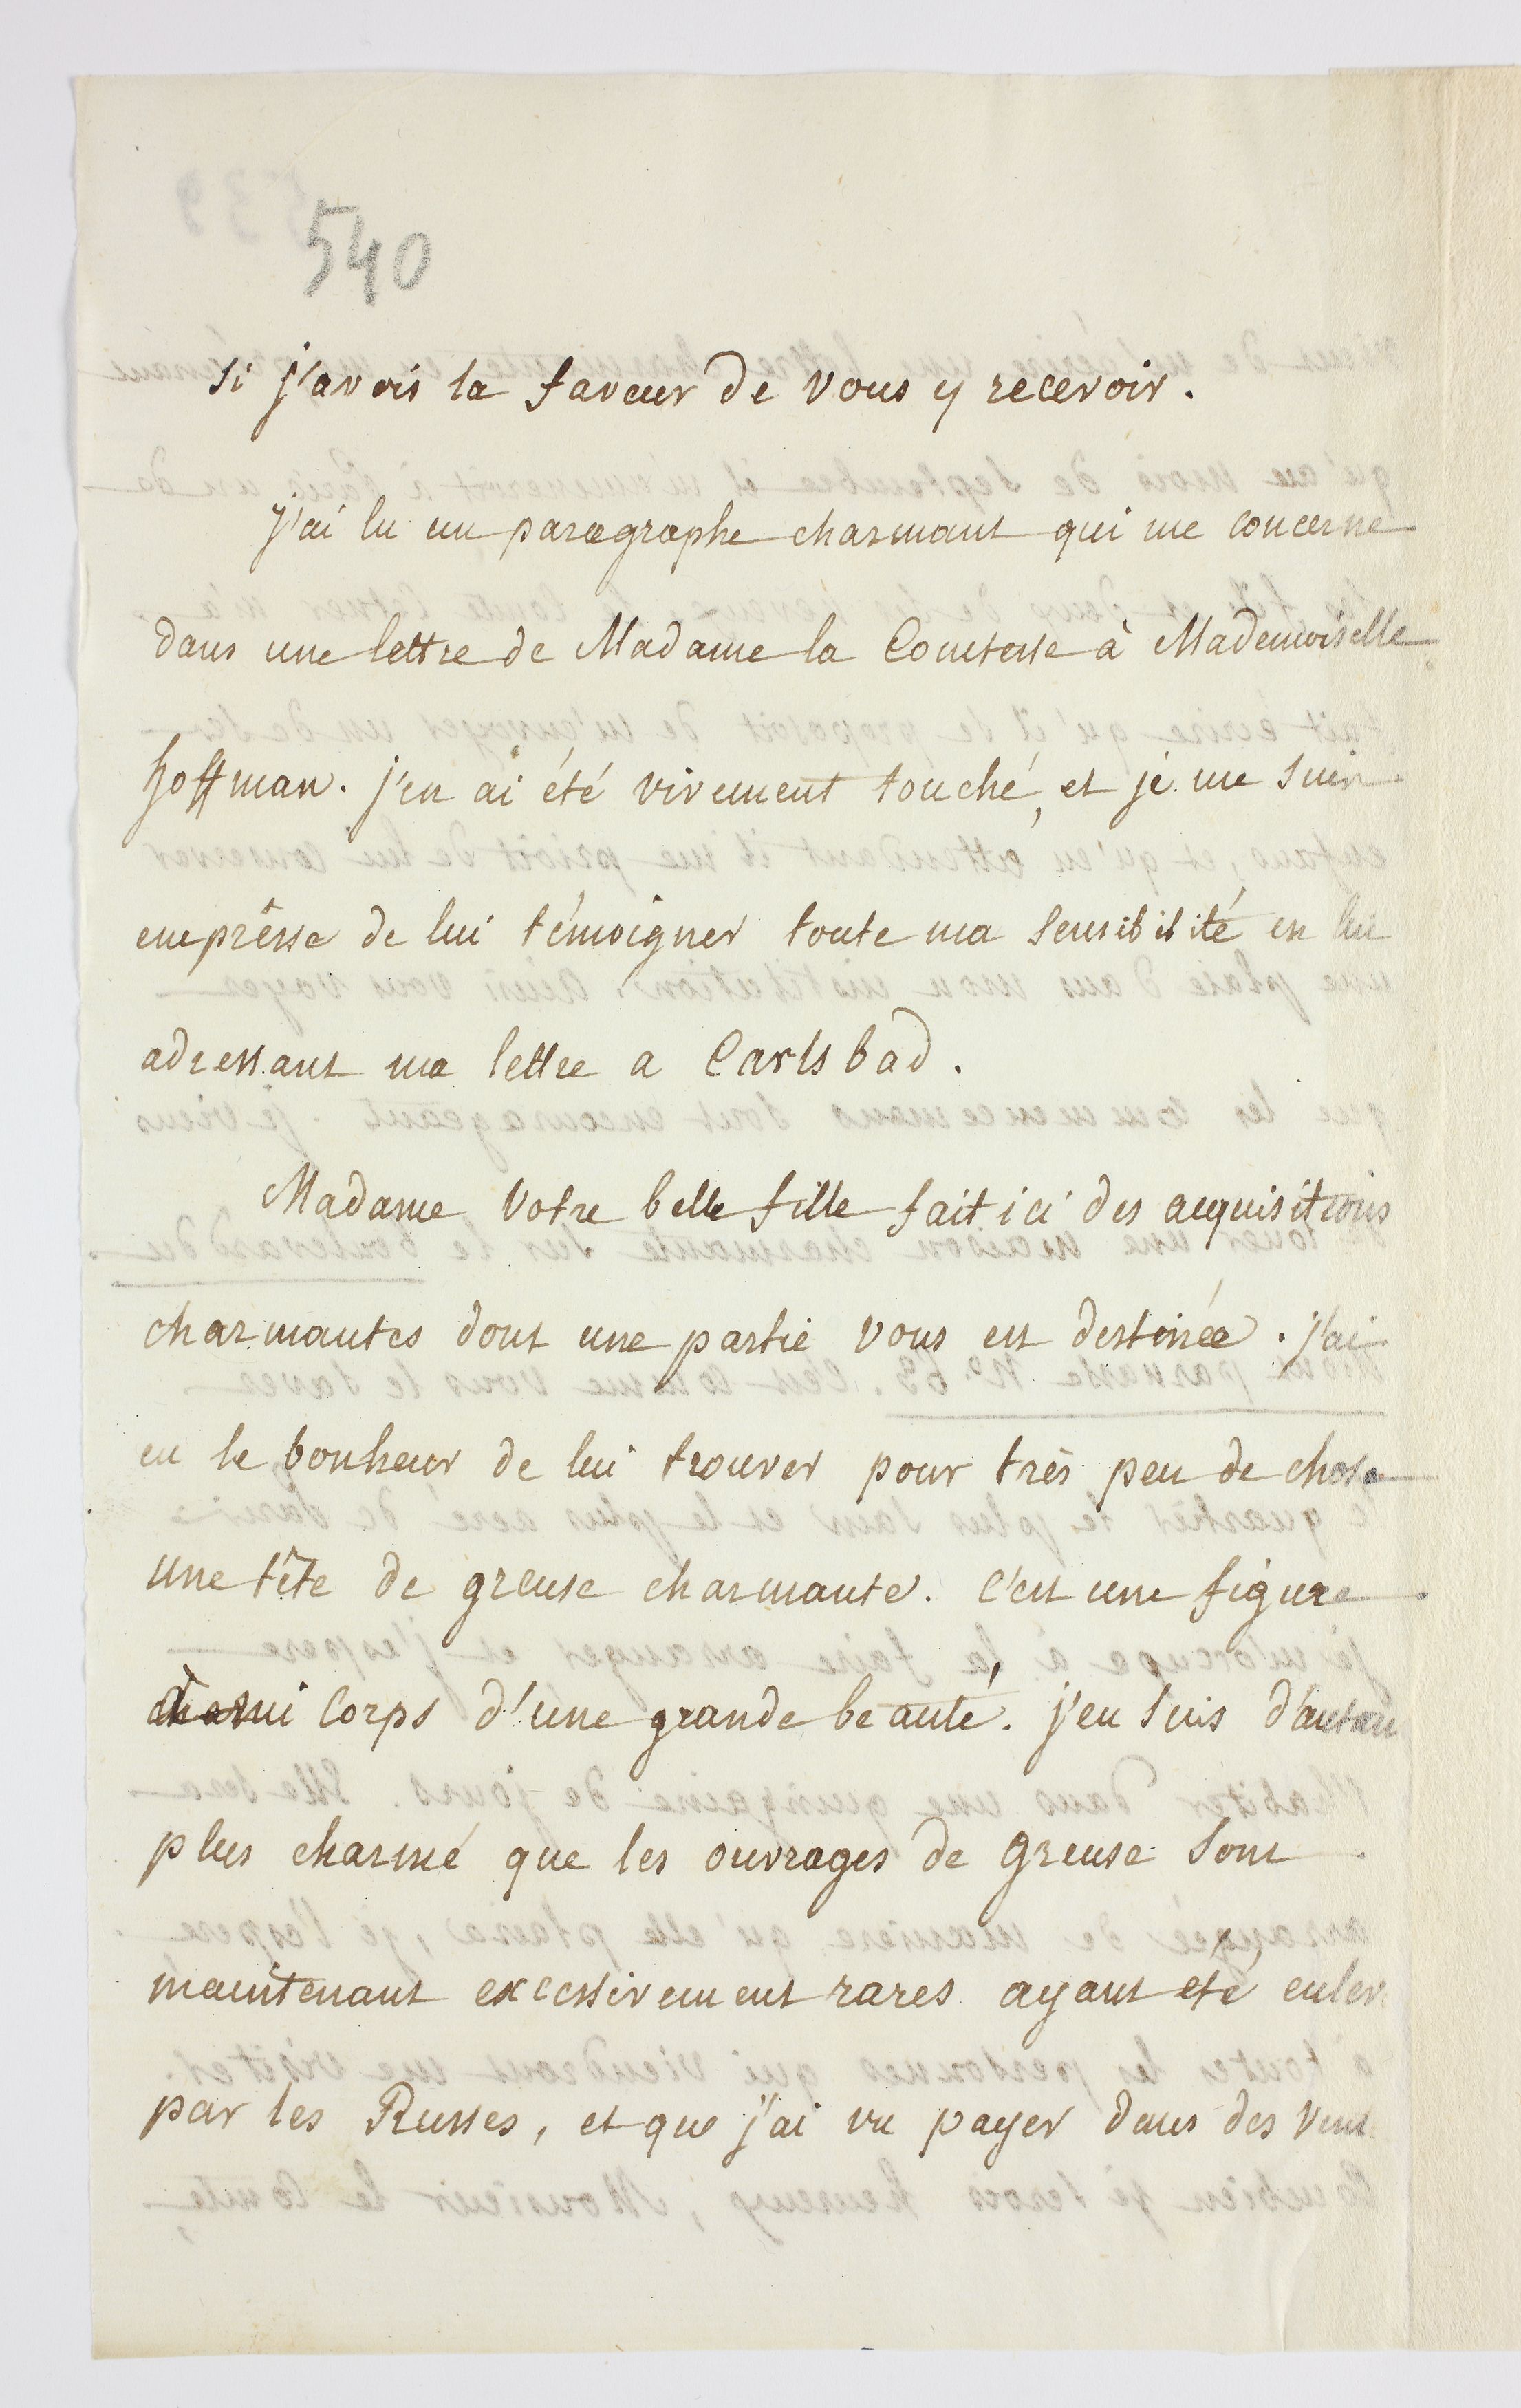 540
si j'avois la faveur de vous y recevoir.
j'ai lu un paragraphe charmant qui me concerne
dans une lettre de Madame la Comtesse à Mademoiselle
hoffman. j'en ai été vivement touché, et je me suis
empressé de lui témoigner toute ma sensibilité en lui
adressant ma lettre a Carlsbad.
Madame votre belle fille fait ici des acquisitions
charmantes dont une partie vous est destinée. j'ai
eu le bonheur de lui trouver pour très peu de chose
une tête de greuse charmante. c'est une figure
demi corps d'une grande beauté. j'en suis d'autan
plus charmé que les ouvrages de greuse sont
maintenant excessivement rares ayant eté enlev
par les Russes, et que j'ai vu payer dans des vent